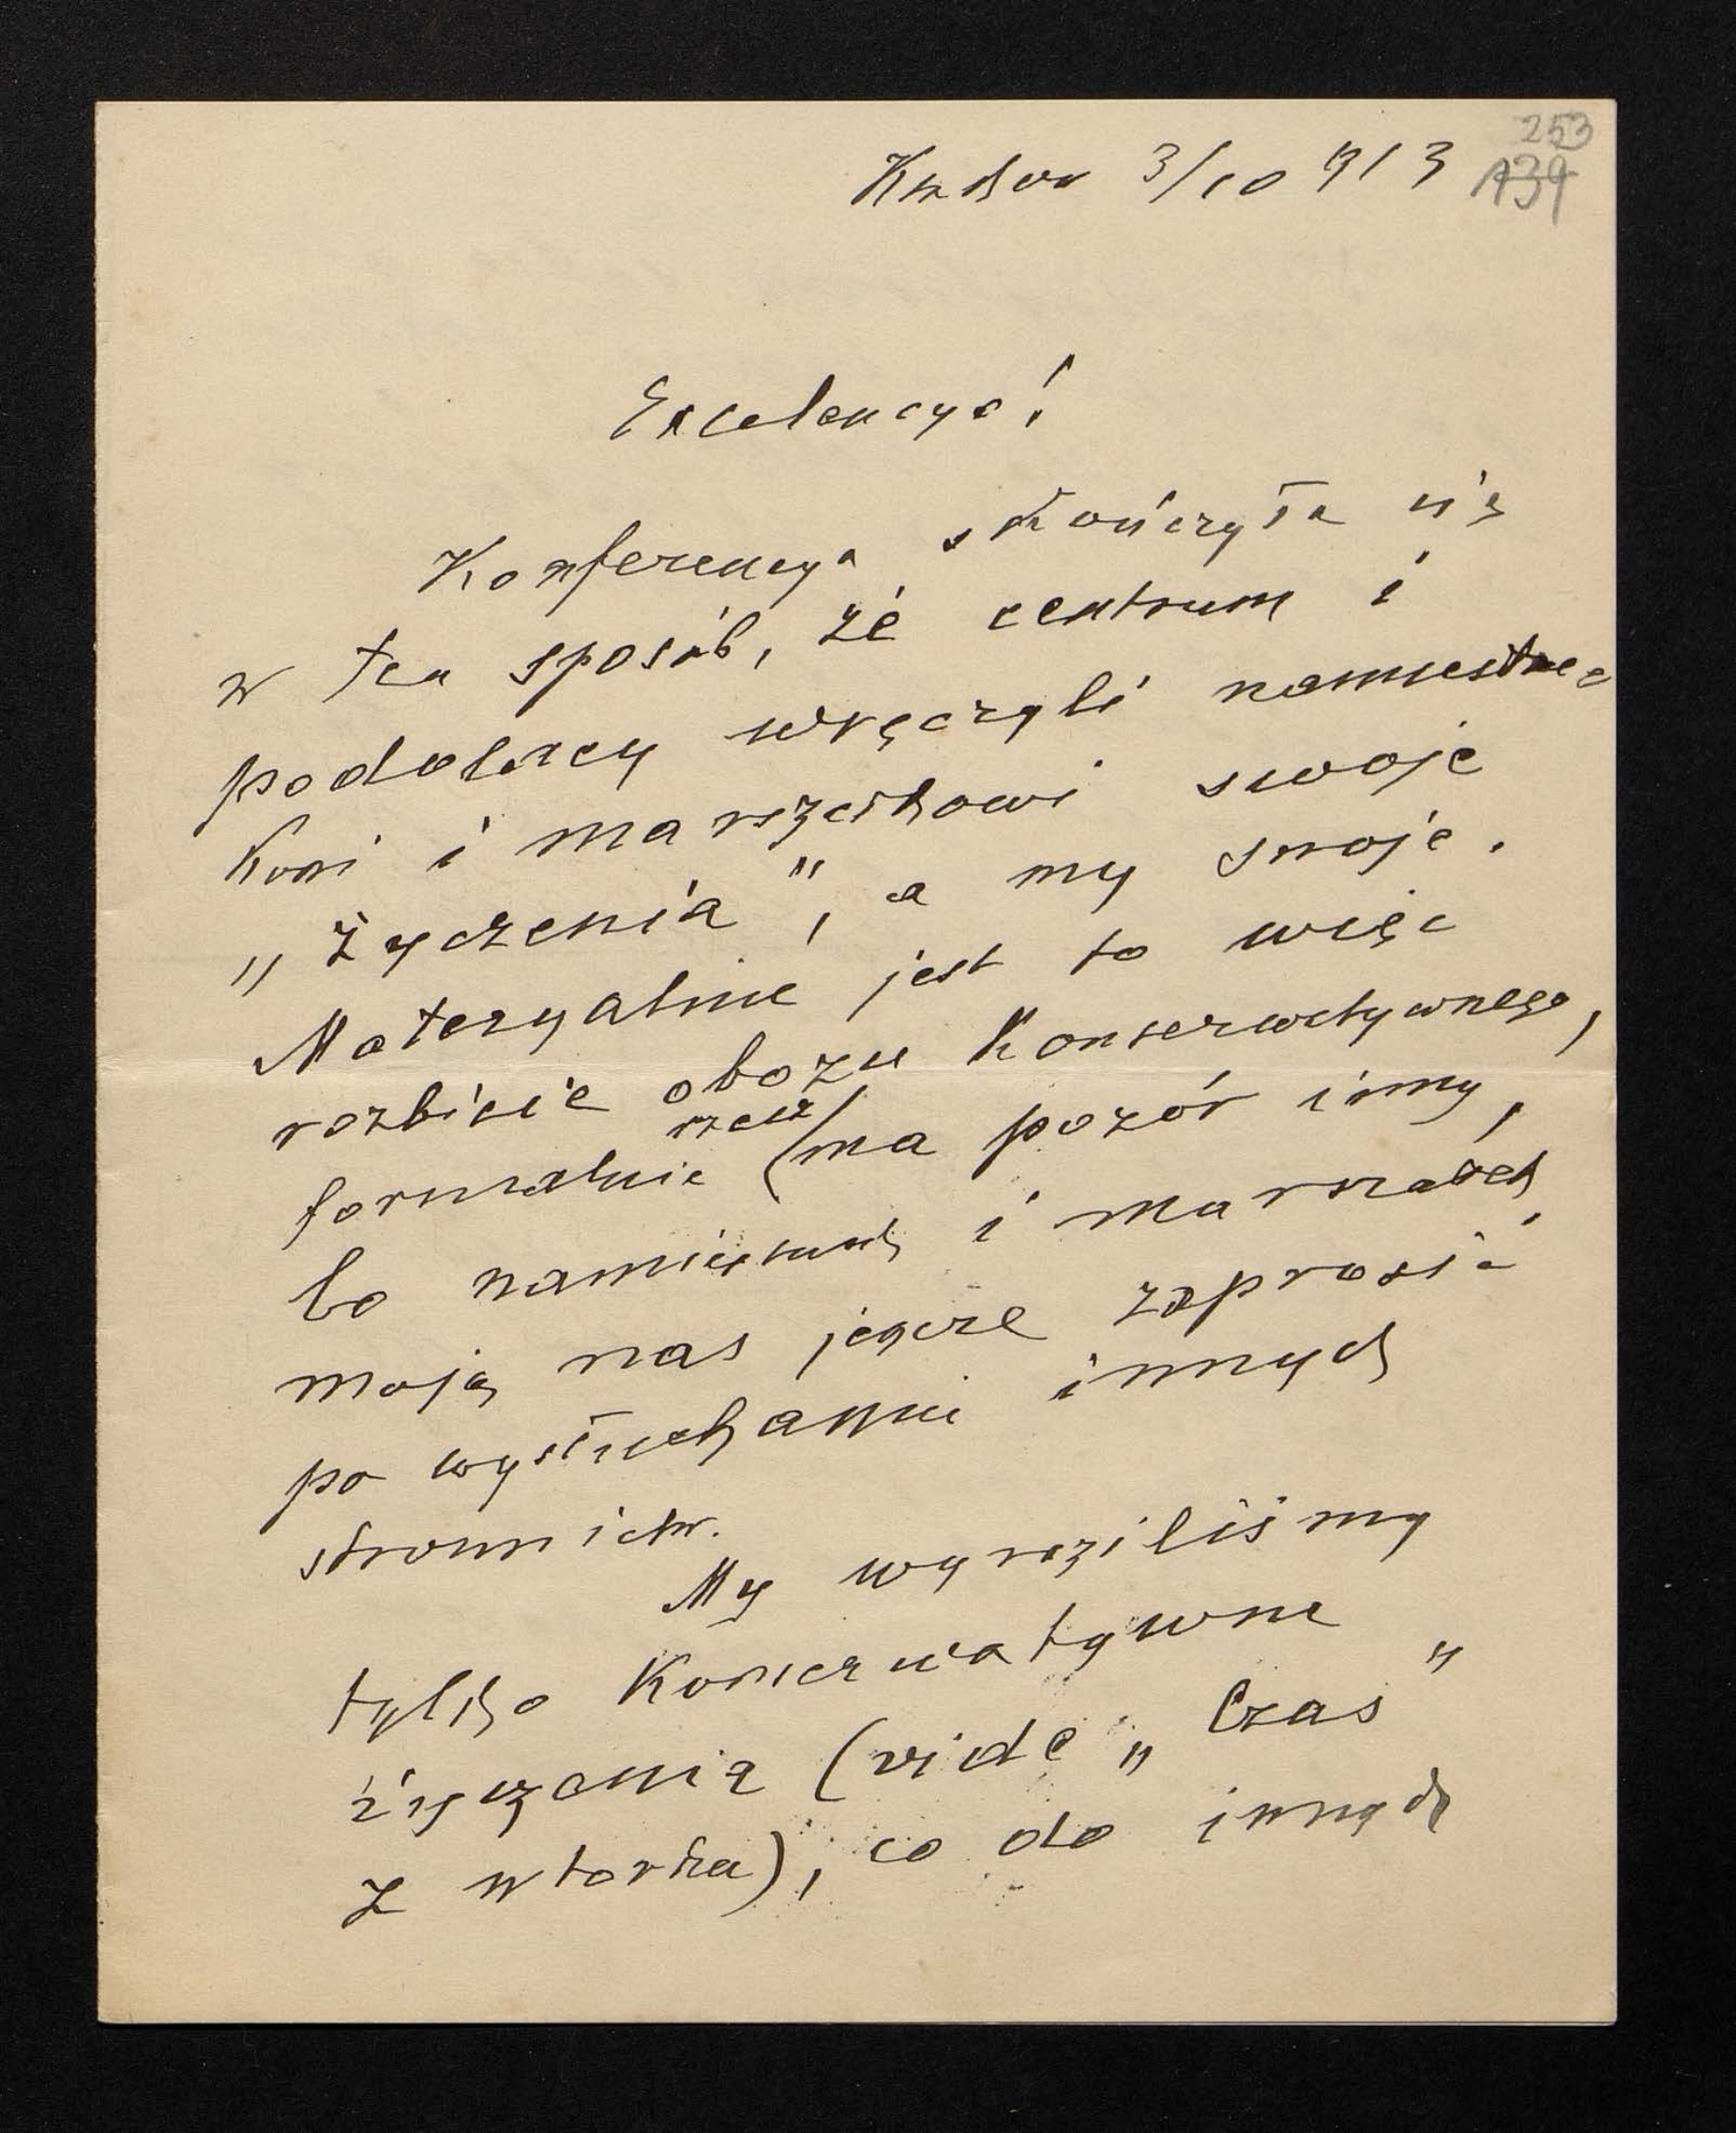 253
139
Kraków 3/10 913
Excelencyo!
Konferencya skończyła się
w ten sposób, że centrum i
podolacy wręczyli namiestni-
kowi i marszałkowi swoje
„życzenia”, a my swoje.
Materyalnie jest to więc
rozbicie obozu konserwatywnego,
formalnie rzecz ma pozór inny,
bo namiestnik i marszałek
mają nas jeszcze zaprosić
po wysłuchaniu innych
stronnictw.
My wyraziliśmy
tylko konserwatywne
życzenia (vide „Czas”
z wtorku), co do innych